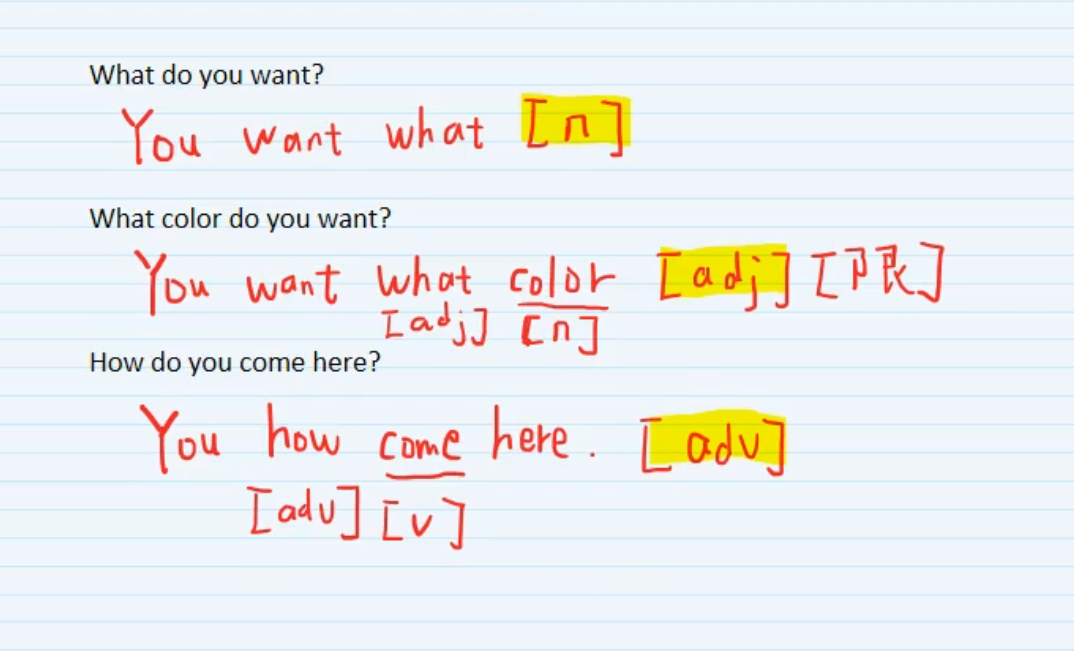 What do you want?
You want what [n]
What color do you want?
You want what color [adj] [限]
[adj] [n]
How do you come here?
You how come here. [adv]
[adv] [v]